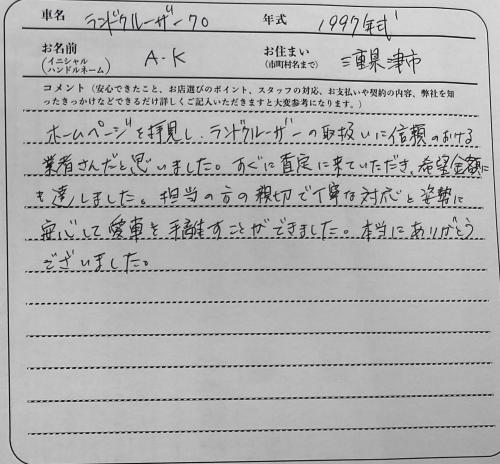 車名 ランドクルーザー70 年式 1997年式
お名前 (イニシャル ハンドルネーム) A・K お住まい (市町村名まで) 三重県津市
コメント（安心できたこと、お店選びのポイント、スタッフの対応、お支払いや契約の内容、弊社を知
ったきっかけなどできるだけ詳しくご記入いただきますと大変参考になります。）
ホームページを拝見し、ランドクルーザーの取扱いに信頼のおける
業者さんだと思いました。すぐに査定に来ていただき、希望金額に
も達しました。担当の方の親切で丁寧な対応と姿勢に
安心して愛車を手離すことができました。本当にありがとう
ございました。